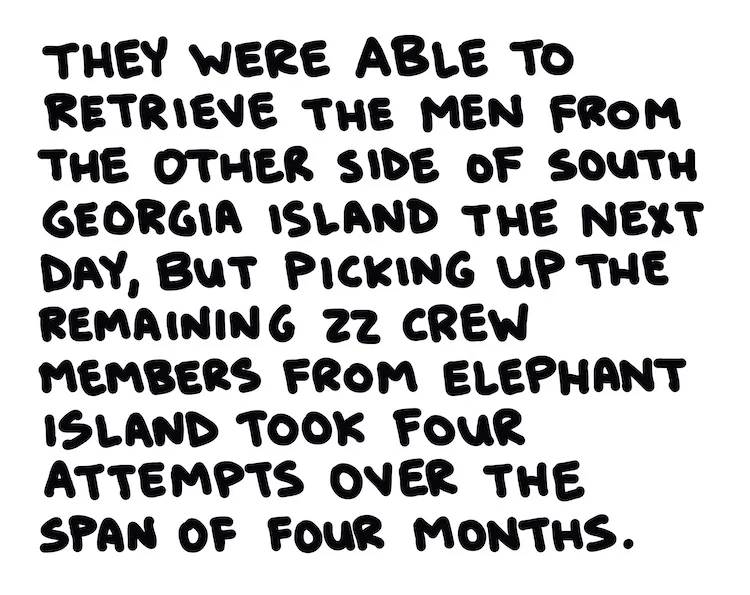 THEY WERE ABLE TO
RETRIEVE THE MEN FROM
THE OTHER SIDE OF SOUTH
GEORGIA ISLAND THE NEXT
DAY, BUT PICKING UP THE
REMAINING 22 CREW
MEMBERS FROM ELEPHANT
ISLAND TOOK FOUR
ATTEMPTS OVER THE
SPAN OF FOUR MONTHS.